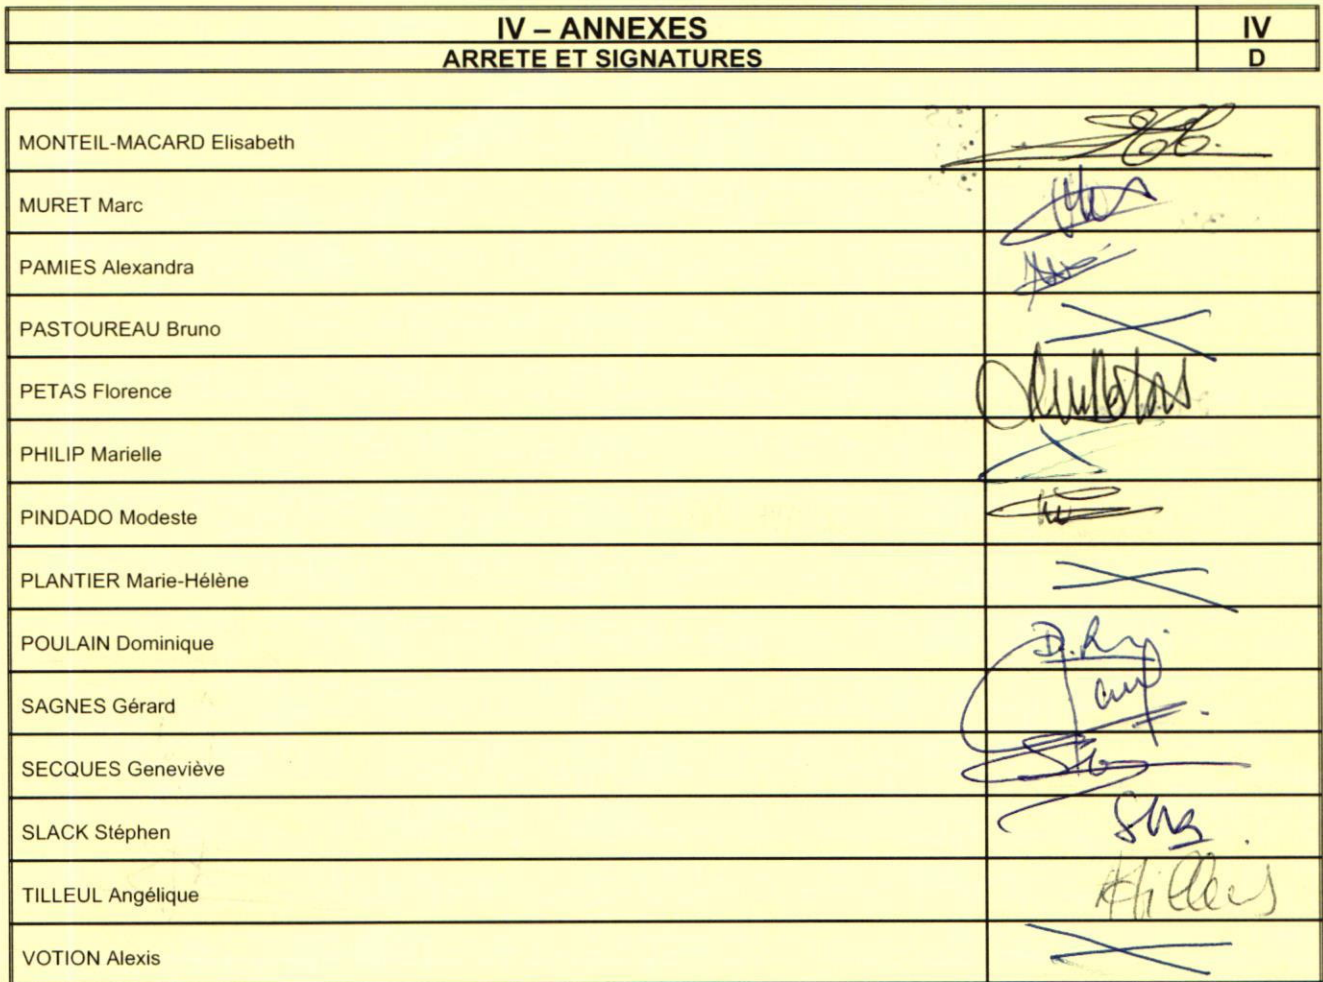 IV – ANNEXES IV
ARRETE ET SIGNATURES D
MONTEIL-MACARD Elisabeth
MURET Marc
PAMIES Alexandra
PASTOUREAU Bruno
PETAS Florence
PHILIP Marielle
PINDADO Modeste
PLANTIER Marie-Hélène
POULAIN Dominique
SAGNES Gérard
SECQUES Geneviève
SLACK Stéphen
TILLEUL Angélique
VOTION Alexis